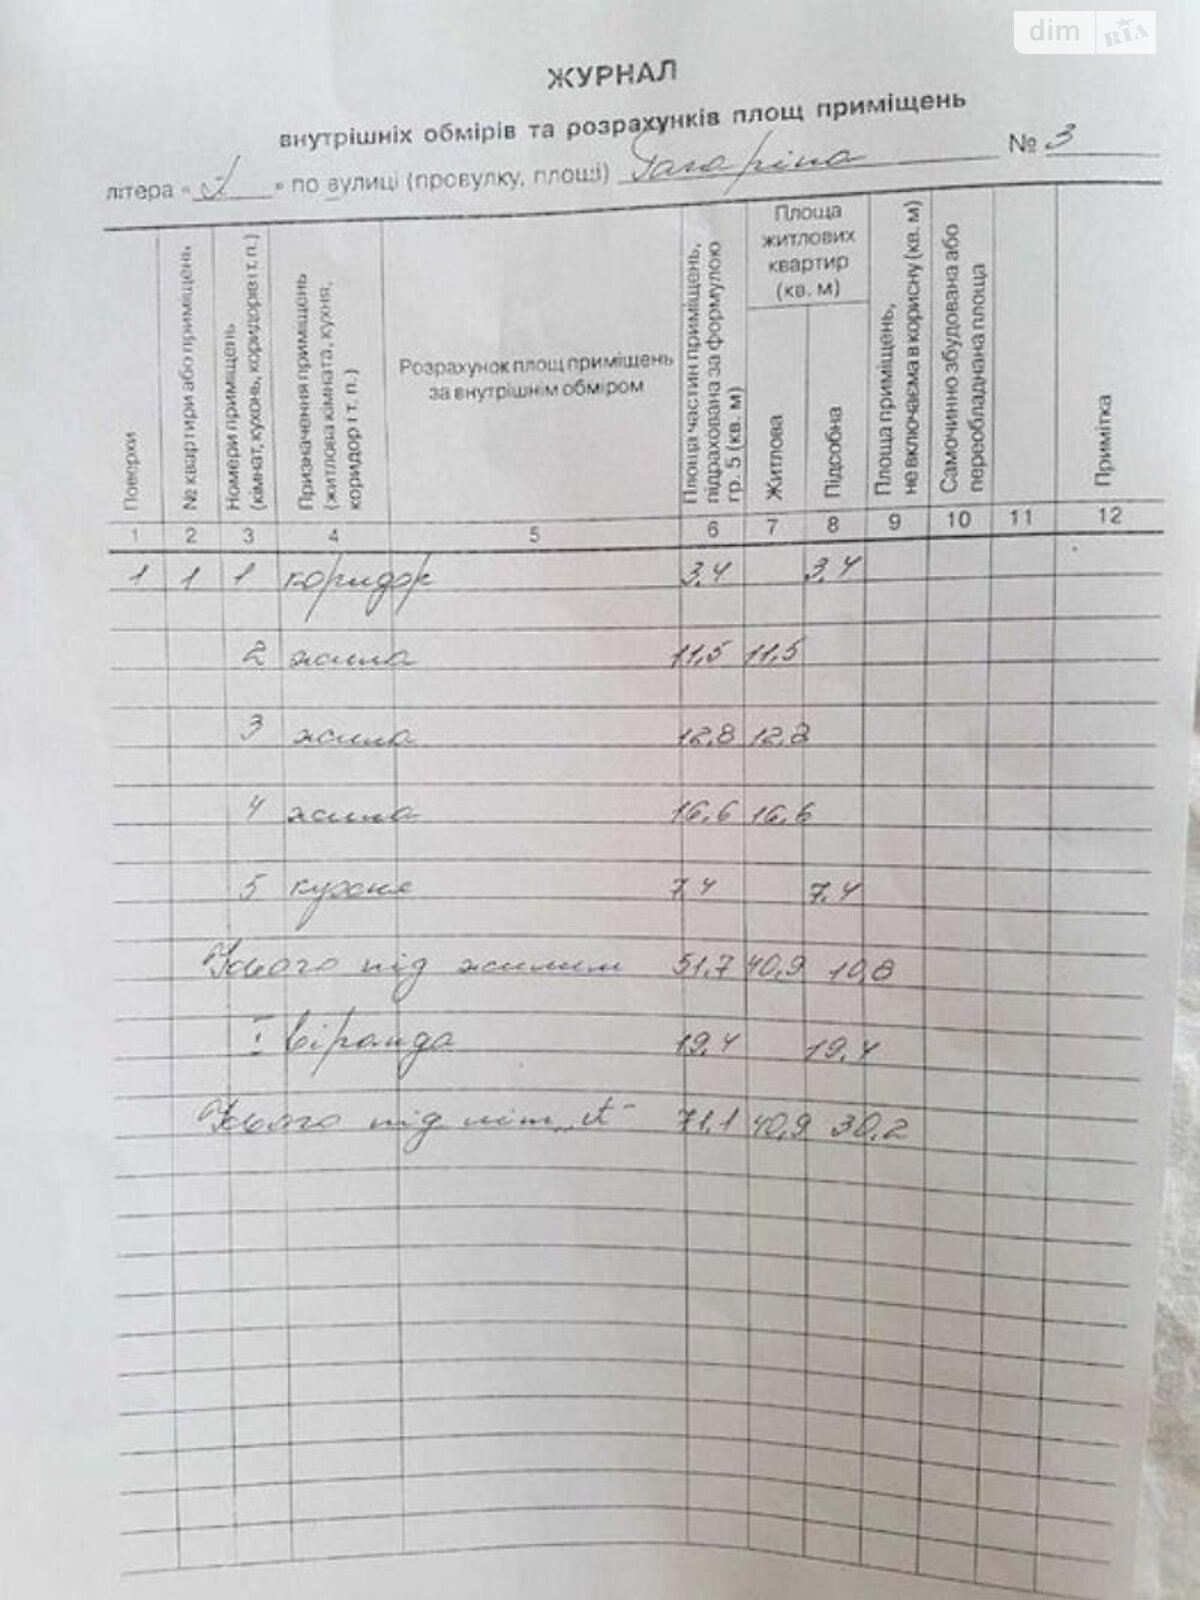 dim RIA
ЖУРНАЛ
внутрішніх обмірів та розрахунків площ приміщень
літера "А" по вулиці (провулку, площі) Гагаріна № 3
Поверхи
№ квартири або приміщень
Номери приміщень (кімнат, кухонь, коридорів і т. п.)
Призначення приміщень (житлова кімната, кухня, коридор і т. п.)
Розрахунок площ приміщень за внутрішнім обміром
Площа частин приміщень, підрахована за формулою гр. 5 (кв. м)
Площа житлових квартир (кв. м)
Житлова
Підсобна
Площа приміщень, не включаєма в корисну (кв. м)
Самочинно збудована або переобладнана площа
Примітка
1 2 3 4 5 6 7 8 9 10 11 12
1 1 1 коридор 3,4 3,4
2 жила 11,5 11,5
3 жила 12,8 12,8
4 жила 16,6 16,6
5 кухня 7,4 7,4
Усього під жилим 51,7 40,9 10,8
І віранда 19,4 19,4
Усього під літ. „А" 71,1 40,9 30,2